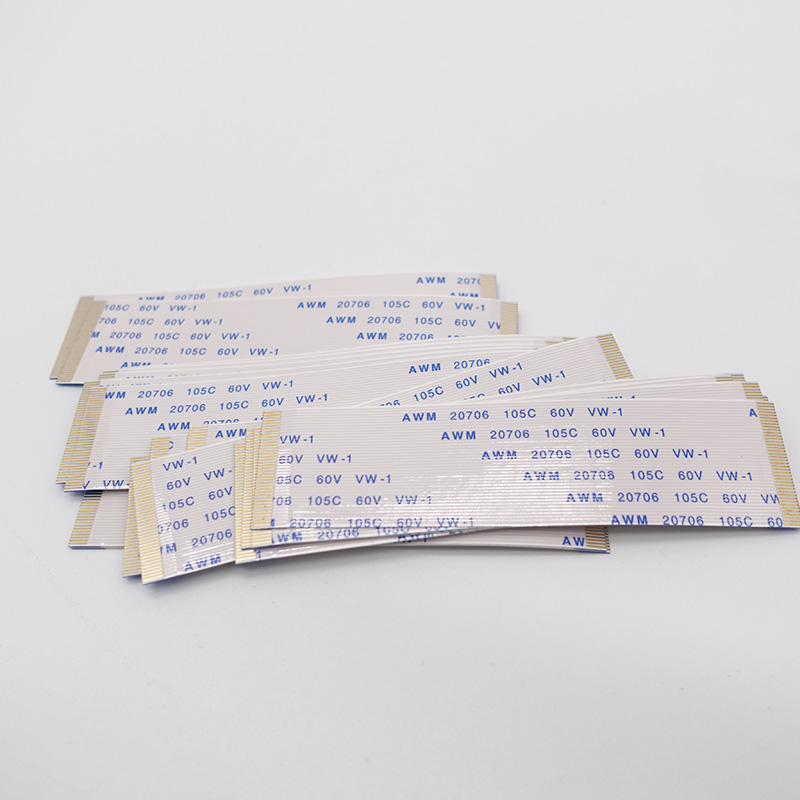 AWM 2070
AWM 20706 105C 60V VW-1
AWM
105C 60V VW-1 AWM 20706 105C 60V
706 105C 60V VW-1 AWM 20706 105C 60V VW
AWM 20706 105C 60V VW-1 AWM 20706
AWM 20706 105C 60V VW-1
AWM 20706
AWM 20706 105C 60V VW-1
20706 105C 60V VW-1
AWM 20706 105C 60V VW-1
AWM 20706
AWM
AWM 20706 105C 60V VW-1
VW-1 AWM 20706 105C 60V VW-1
60V VW-1 AWM 20706 105C 60V VW-1
05C 60V VW-1 AWM 20706 105C 60V VW-1
706 105C 60V VW-1 AWM 20706 105C 60V VW
20706 105C 60V VW-1 AWM 20706 105C 60
VW-1
60V
105C 60V
20706 105C
AWM 20706
AWM
WM 20706 105C 60V VW-1
AW